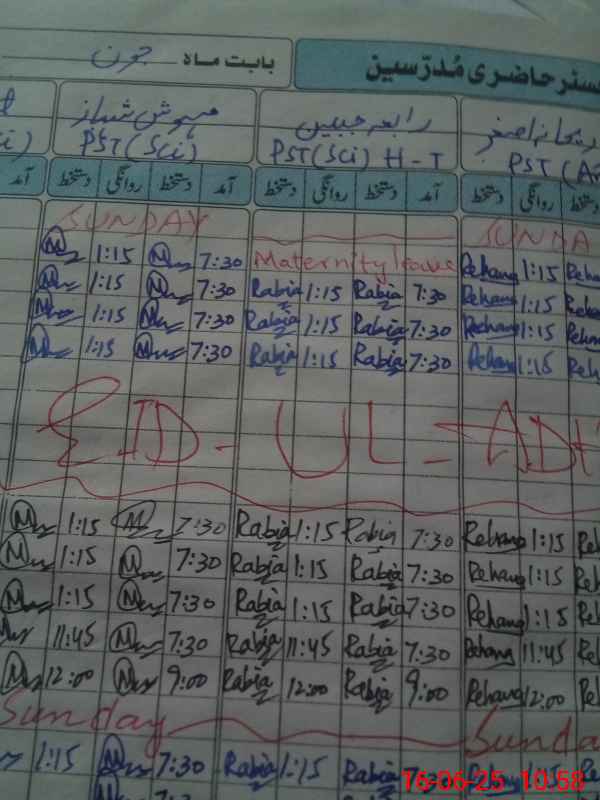 رجسٹر حاضری مُدرّسین بابت ماہ جون
ریحانہ اصغر رابعہ جبین مہوش شہباز
PST(Sci) H-T PST(Sci)
دستخط روانگی دستخط آمد دستخط روانگی دستخط آمد دستخط روانگی دستخط آمد
SUNDAY SUNDA
1:15 7:30 Maternity leave Rehana 1:15
1:15 7:30 Rabia 1:15 Rabia 7:30 Rehana 1:15
1:15 7:30 Rabia 1:15 Rabia 7:30 Rehana 1:15
1:15 7:30 Rabia 1:15 Rabia 7:30 Rehana 1:15
EID-UL-ADH
1:15 7:30 Rabia 1:15 Rabia 7:30 Rehana 1:15
1:15 7:30 Rabia 1:15 Rabia 7:30 Rehana 1:15
1:15 7:30 Rabia 1:15 Rabia 7:30 Rehana 1:15
11:45 7:30 Rabia 11:45 Rabia 7:30 Rehana 11:45
12:00 9:00 Rabia 12:00 Rabia 9:00 Rehana 12:00
Sunday Sunda
1:15 7:30 Rabia 1:15 Rabia 7:30 Rehana 1:15
16-06-25 10:58